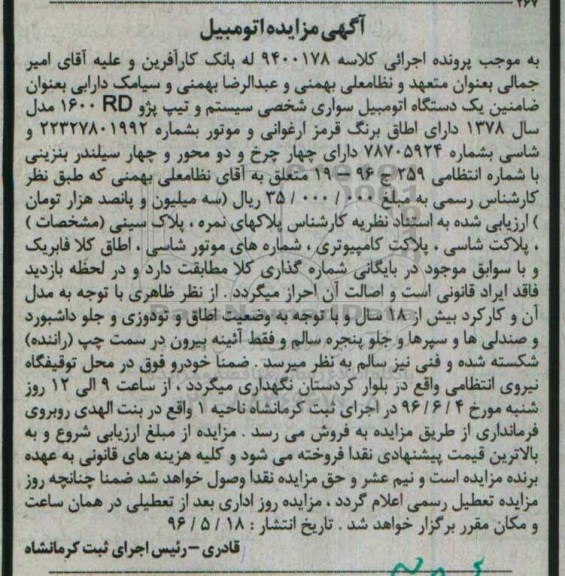 ۲۶۷
آگهی مزایده اتومبیل
به موجب پرونده اجرائی کلاسه ۹۴۰۰۱۷۸ له بانک کارآفرین و علیه آقای امیر
جمالی بعنوان متعهد و نظامعلی بهمنی و عبدالرضا بهمنی و سیامک دارابی بعنوان
ضامنین یک دستگاه اتومبیل سواری شخصی سیستم و تیپ پژو RD ۱۶۰۰ مدل
سال ۱۳۷۸ دارای اطاق برنگ قرمز ارغوانی و موتور بشماره ۲۲۳۲۷۸۰۱۹۹۲ و
شاسی بشماره ۷۸۷۰۵۹۲۴ دارای چهار چرخ و دو محور و چهار سیلندر بنزینی
با شماره انتظامی ۲۵۹ ج ۹۶ – ۱۹ متعلق به آقای نظامعلی بهمنی که طبق نظر
کارشناس رسمی به مبلغ ۳۵/۰۰۰/۰۰۰ ریال (سه میلیون و پانصد هزار تومان
) ارزیابی شده به استناد نظریه کارشناس پلاکهای نمره ، پلاک سینی (مشخصات )
، پلاکت شاسی ، پلاکت کامپیوتری ، شماره های موتور شاسی ، اطاق کلا فابریک
و با سوابق موجود در بایگانی شماره گذاری کلا مطابقت دارد و در لحظه بازدید
فاقد ایراد قانونی است و اصالت آن احراز میگردد . از نظر ظاهری با توجه به مدل
آن و کارکرد بیش از ۱۸ سال و با توجه به وضعیت اطاق و تودوزی و جلو داشبورد
و صندلی ها و سپرها و جلو پنجره سالم و فقط آئینه بیرون در سمت چپ (راننده)
شکسته شده و فنی نیز سالم به نظر میرسد . ضمنا خودرو فوق در محل توقیفگاه
نیروی انتظامی واقع در بلوار کردستان نگهداری میگردد ، از ساعت ۹ الی ۱۲ روز
شنبه مورخ ۹۶/۶/۴ در اجرای ثبت کرمانشاه ناحیه ۱ واقع در بنت الهدی روبروی
فرمانداری از طریق مزایده به فروش می رسد . مزایده از مبلغ ارزیابی شروع و به
بالاترین قیمت پیشنهادی نقدا فروخته می شود و کلیه هزینه های قانونی به عهده
برنده مزایده است و نیم عشر و حق مزایده نقدا وصول خواهد شد ضمنا چنانچه روز
مزایده تعطیل رسمی اعلام گردد ، مزایده روز اداری بعد از تعطیلی در همان ساعت
و مکان مقرر برگزار خواهد شد . تاریخ انتشار : ۹۶/۵/۱۸
قادری – رئیس اجرای ثبت کرمانشاه